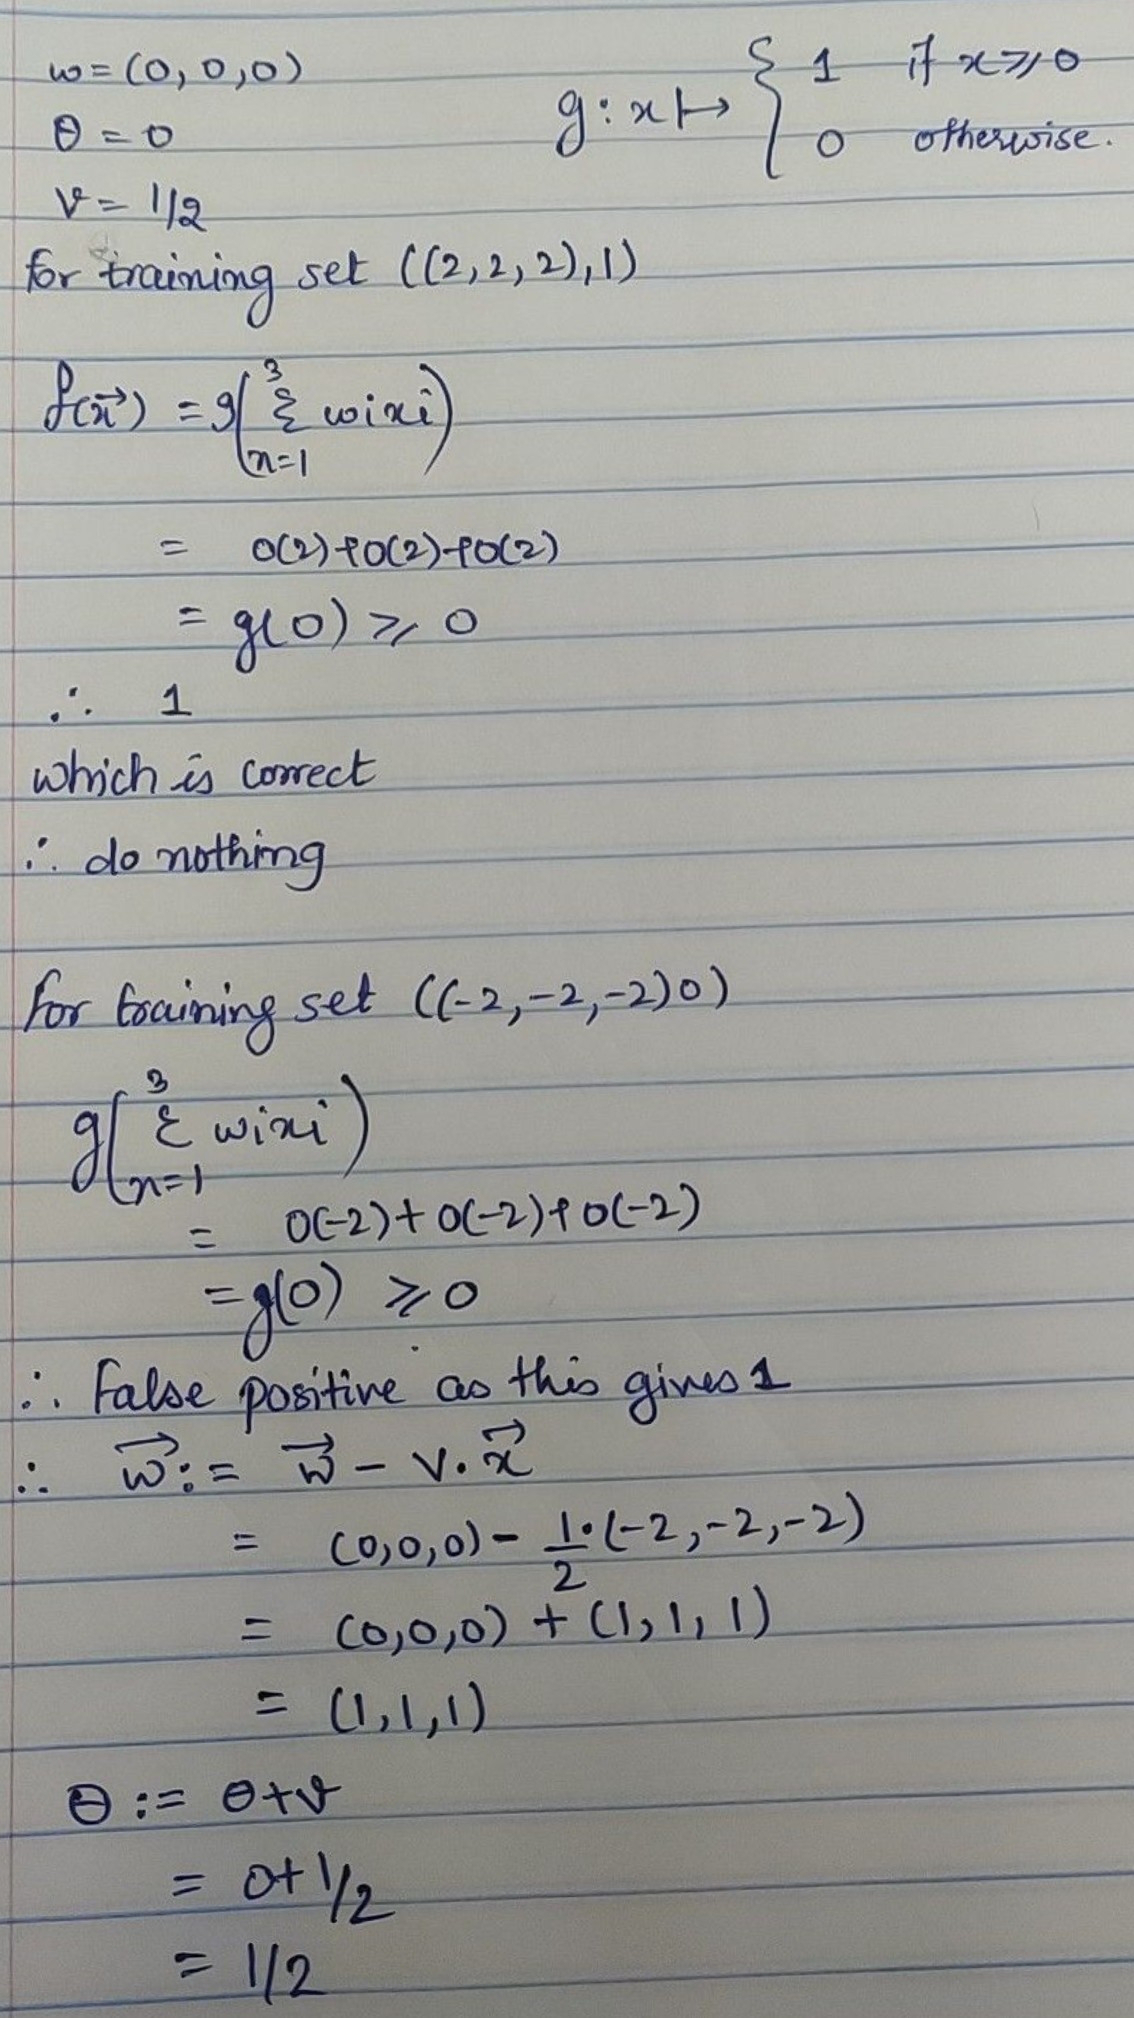 w = (0,0,0)
θ = 0
v = 1/2
g : x ↦ { 1 if x ⩾ 0
0 otherwise.
for training set ((2,2,2),1)
f(x⃗) = g( 3 Σ n=1 wixi )
= 0(2)+0(2)+0(2)
= g(0) ⩾ 0
∴ 1
which is correct
∴ do nothing
for training set ((-2,-2,-2)0)
g( 3 Σ n=1 wixi )
= 0(-2)+0(-2)+0(-2)
= g(0) ⩾ 0
∴ False positive as this gives 1
∴ w⃗ := w⃗ - v. x⃗
= (0,0,0) - 1/2 · (-2,-2,-2)
= (0,0,0) + (1,1,1)
= (1,1,1)
θ := θ+v
= 0+1/2
= 1/2